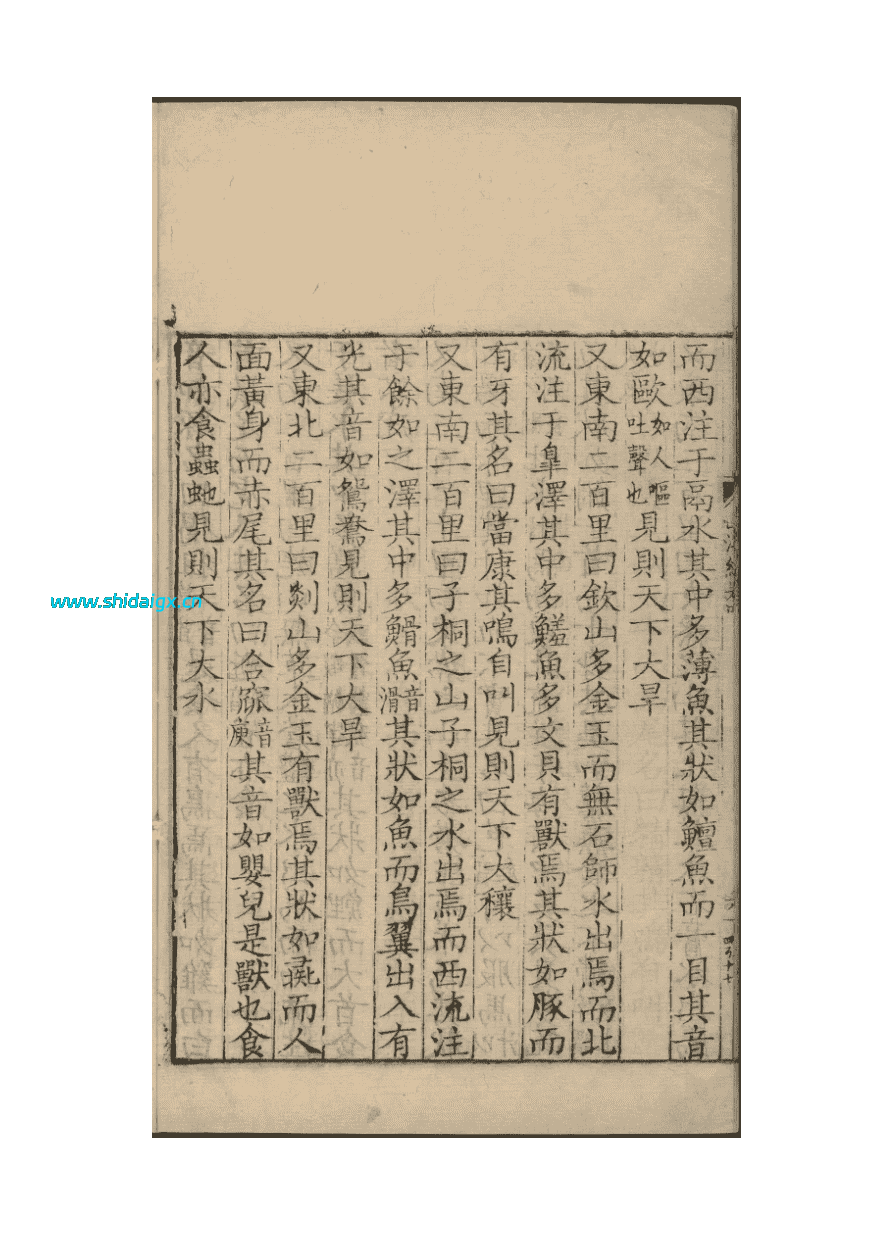 而西注于鬲水其中多薄魚其狀如鱣魚而一目其音
如歐如人嘔吐聲也見則天下大旱
又東南二百里曰欽山多金玉而無石師水出焉而北
流注于皐澤其中多鱃魚多文貝有獸焉其狀如豚而
有牙其名曰當康其鳴自叫見則天下大穰
又東南二百里曰子桐之山子桐之水出焉而西流注
于餘如之澤其中多䱻魚音滑其狀如魚而鳥翼出入有
光其音如鴛鴦見則天下大旱
又東北二百里曰剡山多金玉有獸焉其狀如彘而人
面黃身而赤尾其名曰合窳音庾其音如嬰兒是獸也食
人亦食蟲虵見則天下大水
www.shidaigx.cn